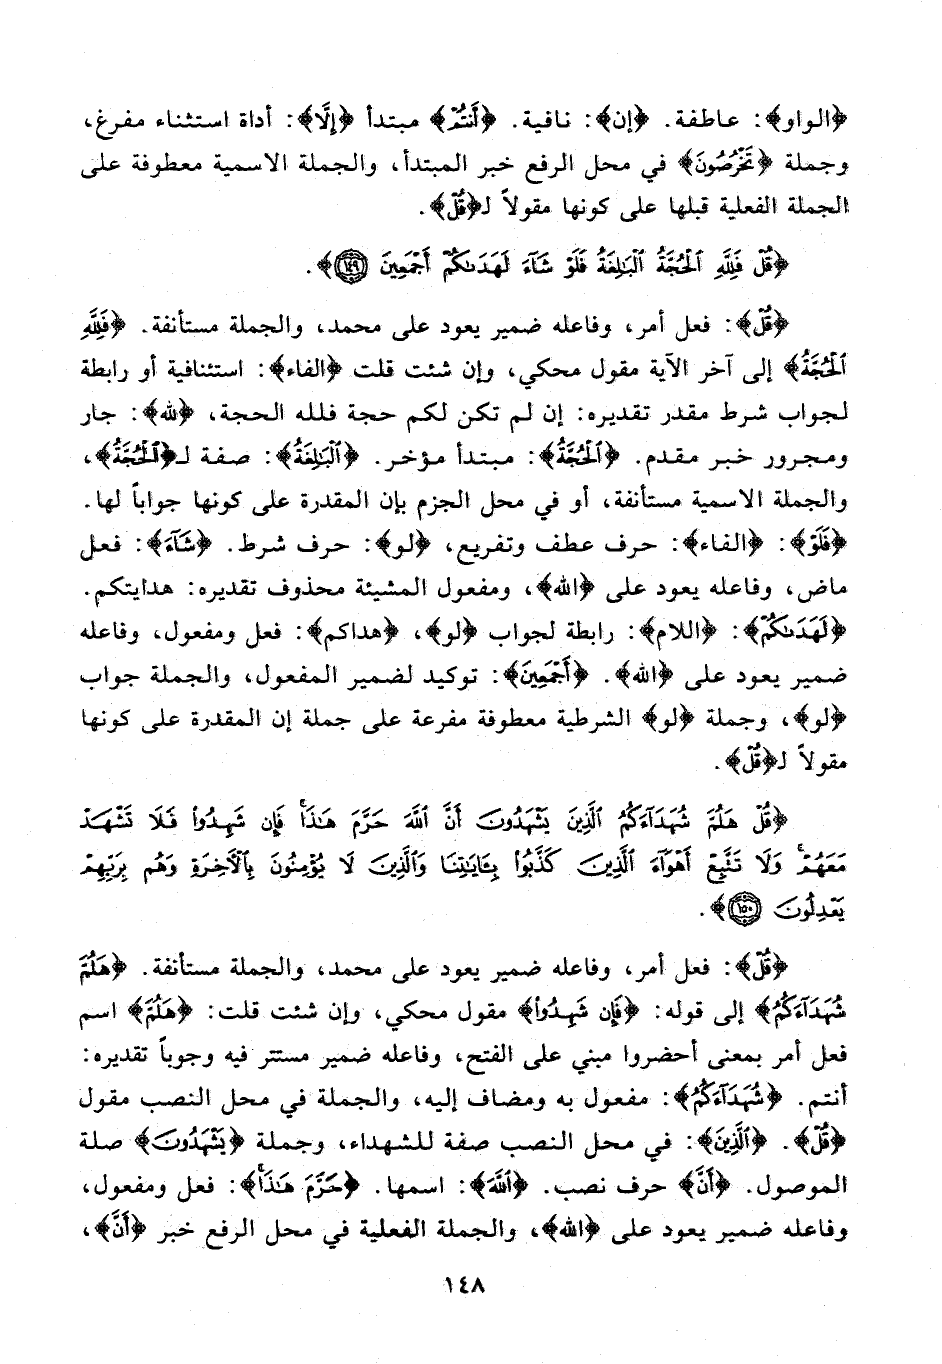 ﴿الواو﴾: عاطفة. ﴿إن﴾: نافية. ﴿أَنتُمْ﴾ مبتدأ ﴿إِلَّا﴾: أداة استثناء مفرغ،
وجملة ﴿تَخْرُصُونَ﴾ في محل الرفع خبر المبتدأ، والجملة الاسمية معطوفة على
الجملة الفعلية قبلها على كونها مقولاً لـ﴿قُلْ﴾.
﴿قُلْ فَلِلَّهِ ٱلْحُجَّةُ ٱلْبَٰلِغَةُ فَلَوْ شَآءَ لَهَدَىٰكُمْ أَجْمَعِينَ ١٤٩﴾.
﴿قُلْ﴾: فعل أمر، وفاعله ضمير يعود على محمد، والجملة مستأنفة. ﴿فَلِلَّهِ
ٱلْحُجَّةُ﴾ إلى آخر الآية مقول محكي، وإن شئت قلت ﴿الفاء﴾: استئنافية أو رابطة
لجواب شرط مقدر تقديره: إن لم تكن لكم حجة فلله الحجة، ﴿لله﴾: جار
ومجرور خبر مقدم. ﴿ٱلْحُجَّةُ﴾: مبتدأ مؤخر. ﴿ٱلْبَٰلِغَةُ﴾: صفة لـ﴿ٱلْحُجَّةُ﴾،
والجملة الاسمية مستأنفة، أو في محل الجزم بإن المقدرة على كونها جواباً لها.
﴿فَلَوْ﴾: ﴿الفاء﴾: حرف عطف وتفريع، ﴿لو﴾: حرف شرط. ﴿شَآءَ﴾: فعل
ماض، وفاعله يعود على ﴿الله﴾، ومفعول المشيئة محذوف تقديره: هدايتكم.
﴿لَهَدَىٰكُمْ﴾: ﴿اللام﴾: رابطة لجواب ﴿لو﴾، ﴿هداكم﴾: فعل ومفعول، وفاعله
ضمير يعود على ﴿الله﴾. ﴿أَجْمَعِينَ﴾: توكيد لضمير المفعول، والجملة جواب
﴿لو﴾، وجملة ﴿لو﴾ الشرطية معطوفة مفرعة على جملة إن المقدرة على كونها
مقولاً لـ﴿قُلْ﴾.
﴿قُلْ هَلُمَّ شُهَدَآءَكُمُ ٱلَّذِينَ يَشْهَدُونَ أَنَّ ٱللَّهَ حَرَّمَ هَٰذَا ۖ فَإِن شَهِدُوا۟ فَلَا تَشْهَدْ
مَعَهُمْ ۚ وَلَا تَتَّبِعْ أَهْوَآءَ ٱلَّذِينَ كَذَّبُوا۟ بِـَٔايَٰتِنَا وَٱلَّذِينَ لَا يُؤْمِنُونَ بِٱلْـَٔاخِرَةِ وَهُم بِرَبِّهِمْ
يَعْدِلُونَ ١٥٠﴾.
﴿قُلْ﴾: فعل أمر، وفاعله ضمير يعود على محمد، والجملة مستأنفة. ﴿هَلُمَّ
شُهَدَآءَكُمُ﴾ إلى قوله: ﴿فَإِن شَهِدُوا۟﴾ مقول محكي، وإن شئت قلت: ﴿هَلُمَّ﴾ اسم
فعل أمر بمعنى أحضروا مبني على الفتح، وفاعله ضمير مستتر فيه وجوباً تقديره:
أنتم. ﴿شُهَدَآءَكُمُ﴾: مفعول به ومضاف إليه، والجملة في محل النصب مقول
﴿قُلْ﴾. ﴿ٱلَّذِينَ﴾: في محل النصب صفة للشهداء، وجملة ﴿يَشْهَدُونَ﴾ صلة
الموصول. ﴿أَنَّ﴾ حرف نصب. ﴿ٱللَّهَ﴾: اسمها. ﴿حَرَّمَ هَٰذَا ۖ﴾: فعل ومفعول،
وفاعله ضمير يعود على ﴿الله﴾، والجملة الفعلية في محل الرفع خبر ﴿أَنَّ﴾،
١٤٨